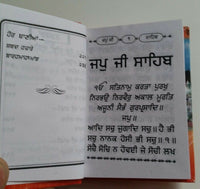 ਹੋਰ ਬਾਣੀਆਂ —
ਸ਼ਬਦ ਹਜ਼ਾਰੇ
ਬਾਰਹਮਾਹ ਮਾਝ
ਜਪੁ ਜੀ ਸਾਹਿਬ
ੴ ਸਤਿਨਾਮੁ ਕਰਤਾ ਪੁਰਖੁ
ਨਿਰਭਉ ਨਿਰਵੈਰੁ ਅਕਾਲ ਮੂਰਤਿ
ਅਜੂਨੀ ਸੈਭੰ ਗੁਰਪ੍ਰਸਾਦਿ ॥
॥ ਜਪੁ ॥
ਆਦਿ ਸਚੁ ਜੁਗਾਦਿ ਸਚੁ ॥ ਹੈ ਭੀ
ਸਚੁ ਨਾਨਕ ਹੋਸੀ ਭੀ ਸਚੁ ॥੧॥
ਸੋਚੈ ਸੋਚਿ ਨ ਹੋਵਈ ਜੇ ਸੋਚੀ